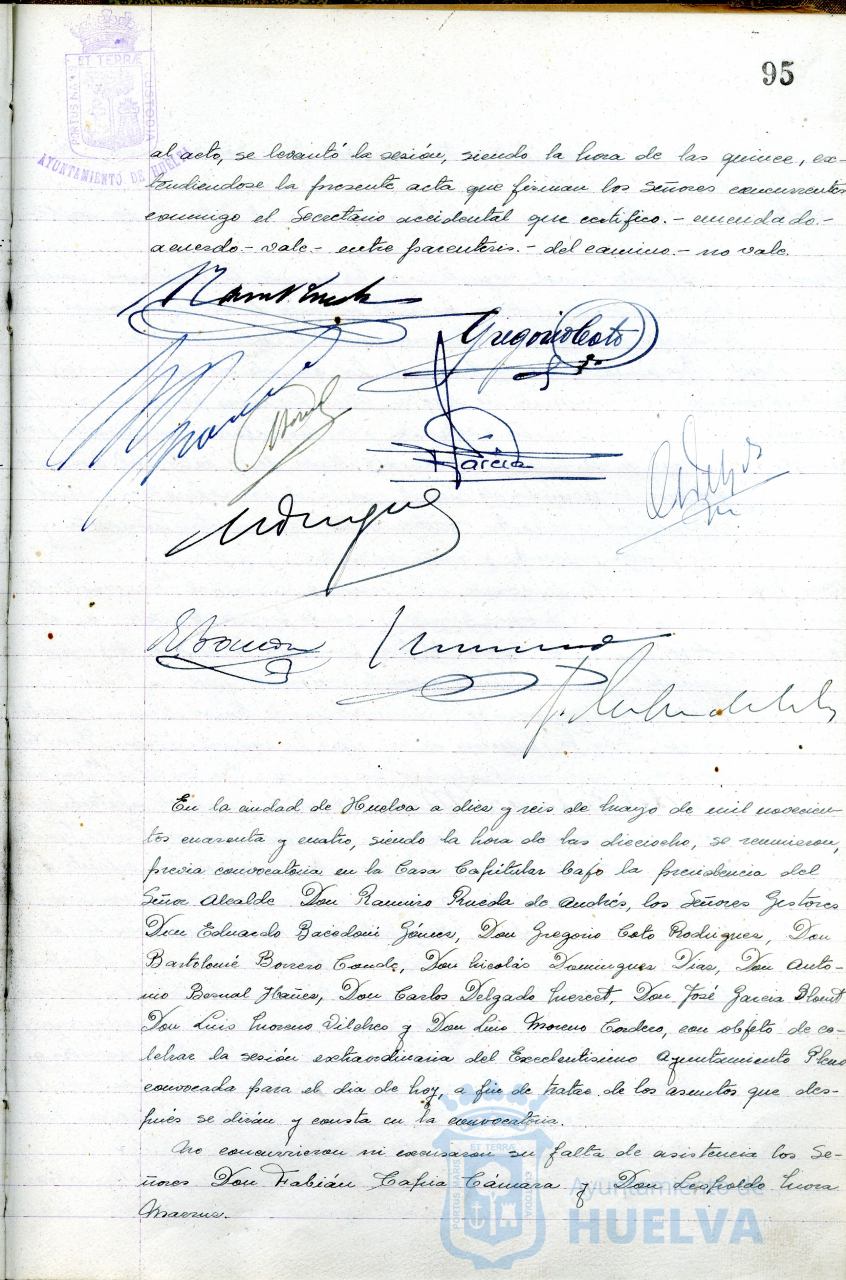 95
PORTUS MARIS ET TERRÆ CUSTODIA
AYUNTAMIENTO DE HUELVA
al acto, se levantó la sesión, siendo la hora de las quince, ex-
tendiendose la presente acta que firman los Señores concurrentes
conmigo el Secretario accidental que certifico.- enmendado.-
acuerdo.- vale.- entre parentesis.- del camino.- no vale.
Gregorio Coto
García
En la ciudad de Huelva a diez y seis de mayo de mil novecien-
tos cuarenta y cuatro, siendo la hora de las dieciocho, se reunieron,
previa convocatoria en la Casa Capitular bajo la presidencia del
Señor Alcalde Don Ramiro Rueda de Andrés, los Señores Gestores
Don Eduardo Bacedoni Gómez, Don Gregorio Coto Rodriguez, Don
Bartolomé Borrero Conde, Don Nicolás Dominguez Diaz, Don Anto-
nio Bernal Ibañez, Don Carlos Delgado Don José Garcia
Don Luis Moreno Vilches y Don Luis Moreno Cordero, con objeto de ce-
lebrar la sesión extraordinaria del Excelentisimo Ayuntamiento Pleno
convocada para el dia de hoy, a fin de tratar de los asuntos que des-
pués se dirán y consta en la convocatoria.
No concurrieron ni excusaron su falta de asistencia los Se-
ñores Don Fabián Tapia Cámara y Don Leopoldo Mora
PORTUS MARIS ET TERRÆ CUSTODIA
Ayuntamiento de
HUELVA